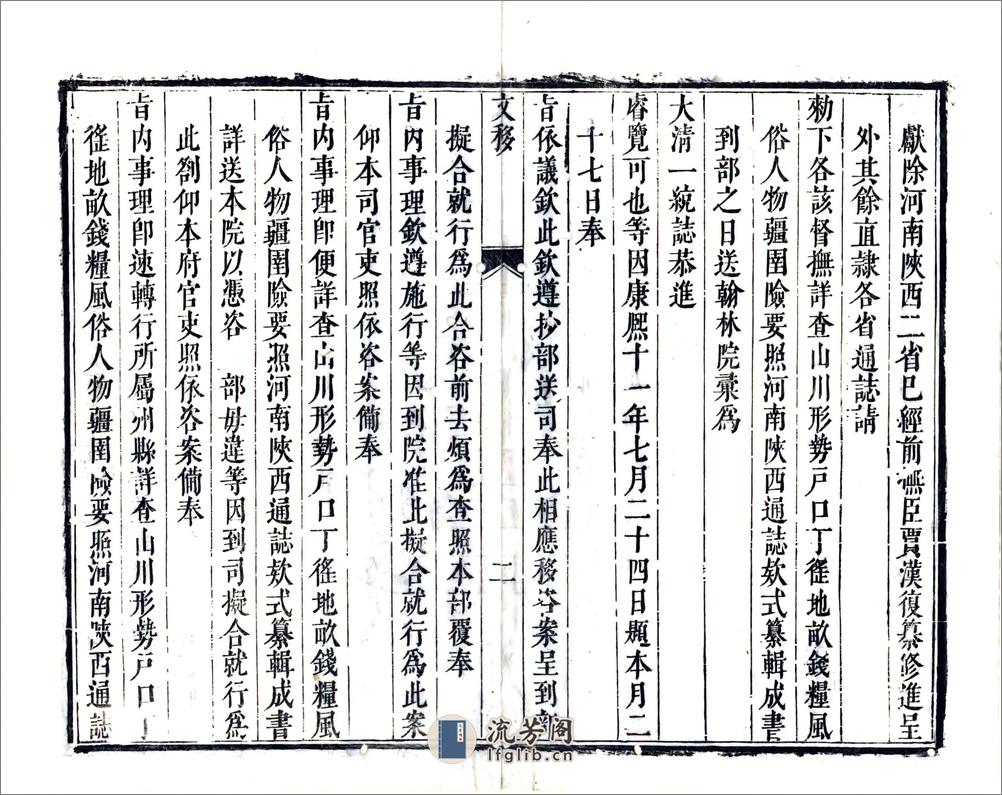 獻除河南陝西二省已經前撫臣賈漢復纂修進呈
外其餘直隷各省通誌請
勑下各該督撫詳查山川形勢戸口丁徭地畝錢糧風
俗人物疆圉險要照河南陝西通誌欵式纂輯成書
到部之日送翰林院彚爲
大清一統誌恭進
睿覽可也等因康熈十一年七月二十四日題本月二
十七日奉
旨依議欽此欽遵抄部送司奉此相應移咨案呈到部
文移
二
擬合就行爲此合咨前去煩爲查照本部覆奉
旨內事理欽遵施行等因到院准此擬合就行爲此案
仰本司官吏照依咨案備奉
旨內事理卽便詳查山川形勢戸口丁徭地畝錢糧風
俗人物疆圉險要照河南陝西通誌欵式纂輯成書
詳送本院以憑咨　部毋違等因到司擬合就行爲
此劄仰本府官吏照依咨案備奉
旨內事理卽速轉行所屬州縣詳查山川形勢戸口丁
徭地畝錢糧風俗人物疆圉險要照河南陝西通誌
流芳阁
lfglib.cn